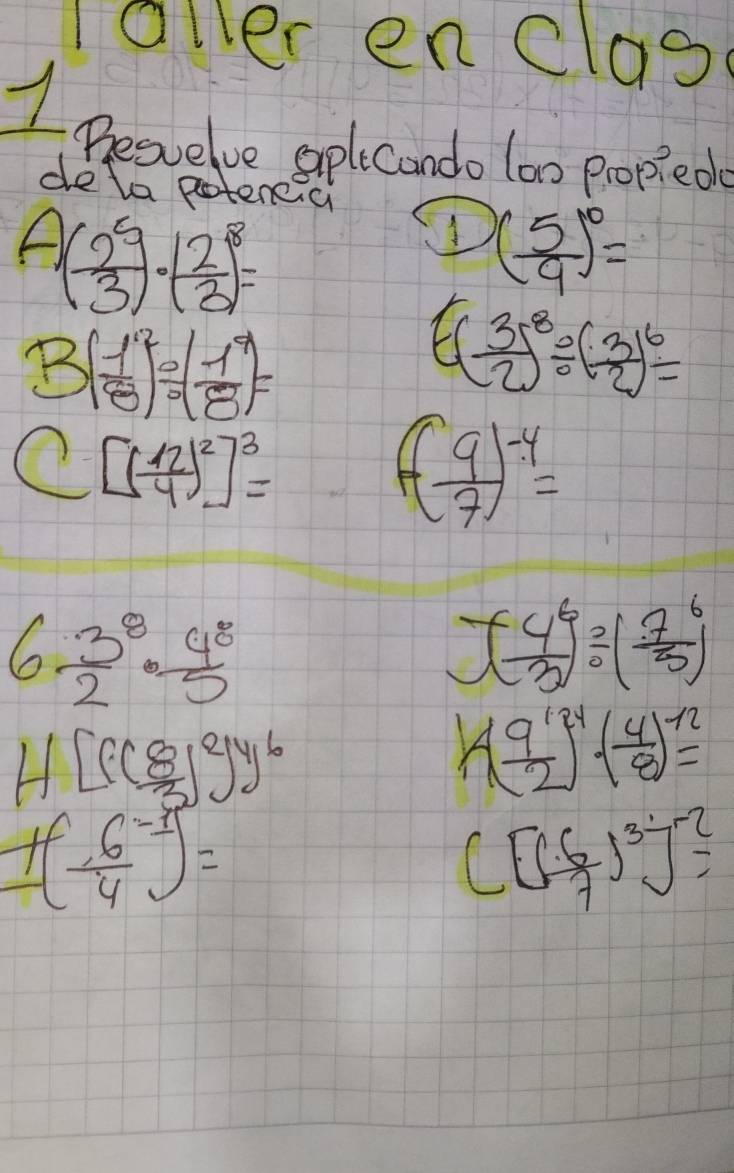 Taller en clas
1 Resuelve aplicando las propieda
de la potencia
A (2/3)^5 · (2/3)^8 =
D (5/9)^0 =
B (1/8)^7 ÷ (1/8)^9 =
E (3/2)^8 ÷ (3/2)^6 =
C [(12/4)^2]^3 =
F (9/7)^-4 =
G 3^8/2 · 4^8/5
J (4/3)^6 ÷ (7/5)^6
H [(((8/3)^2)^4)^6
K (9/2)^-24 · (4/8)^-12 =
I (6/4)^-1 =
L [(6/7)^3]^-2 =